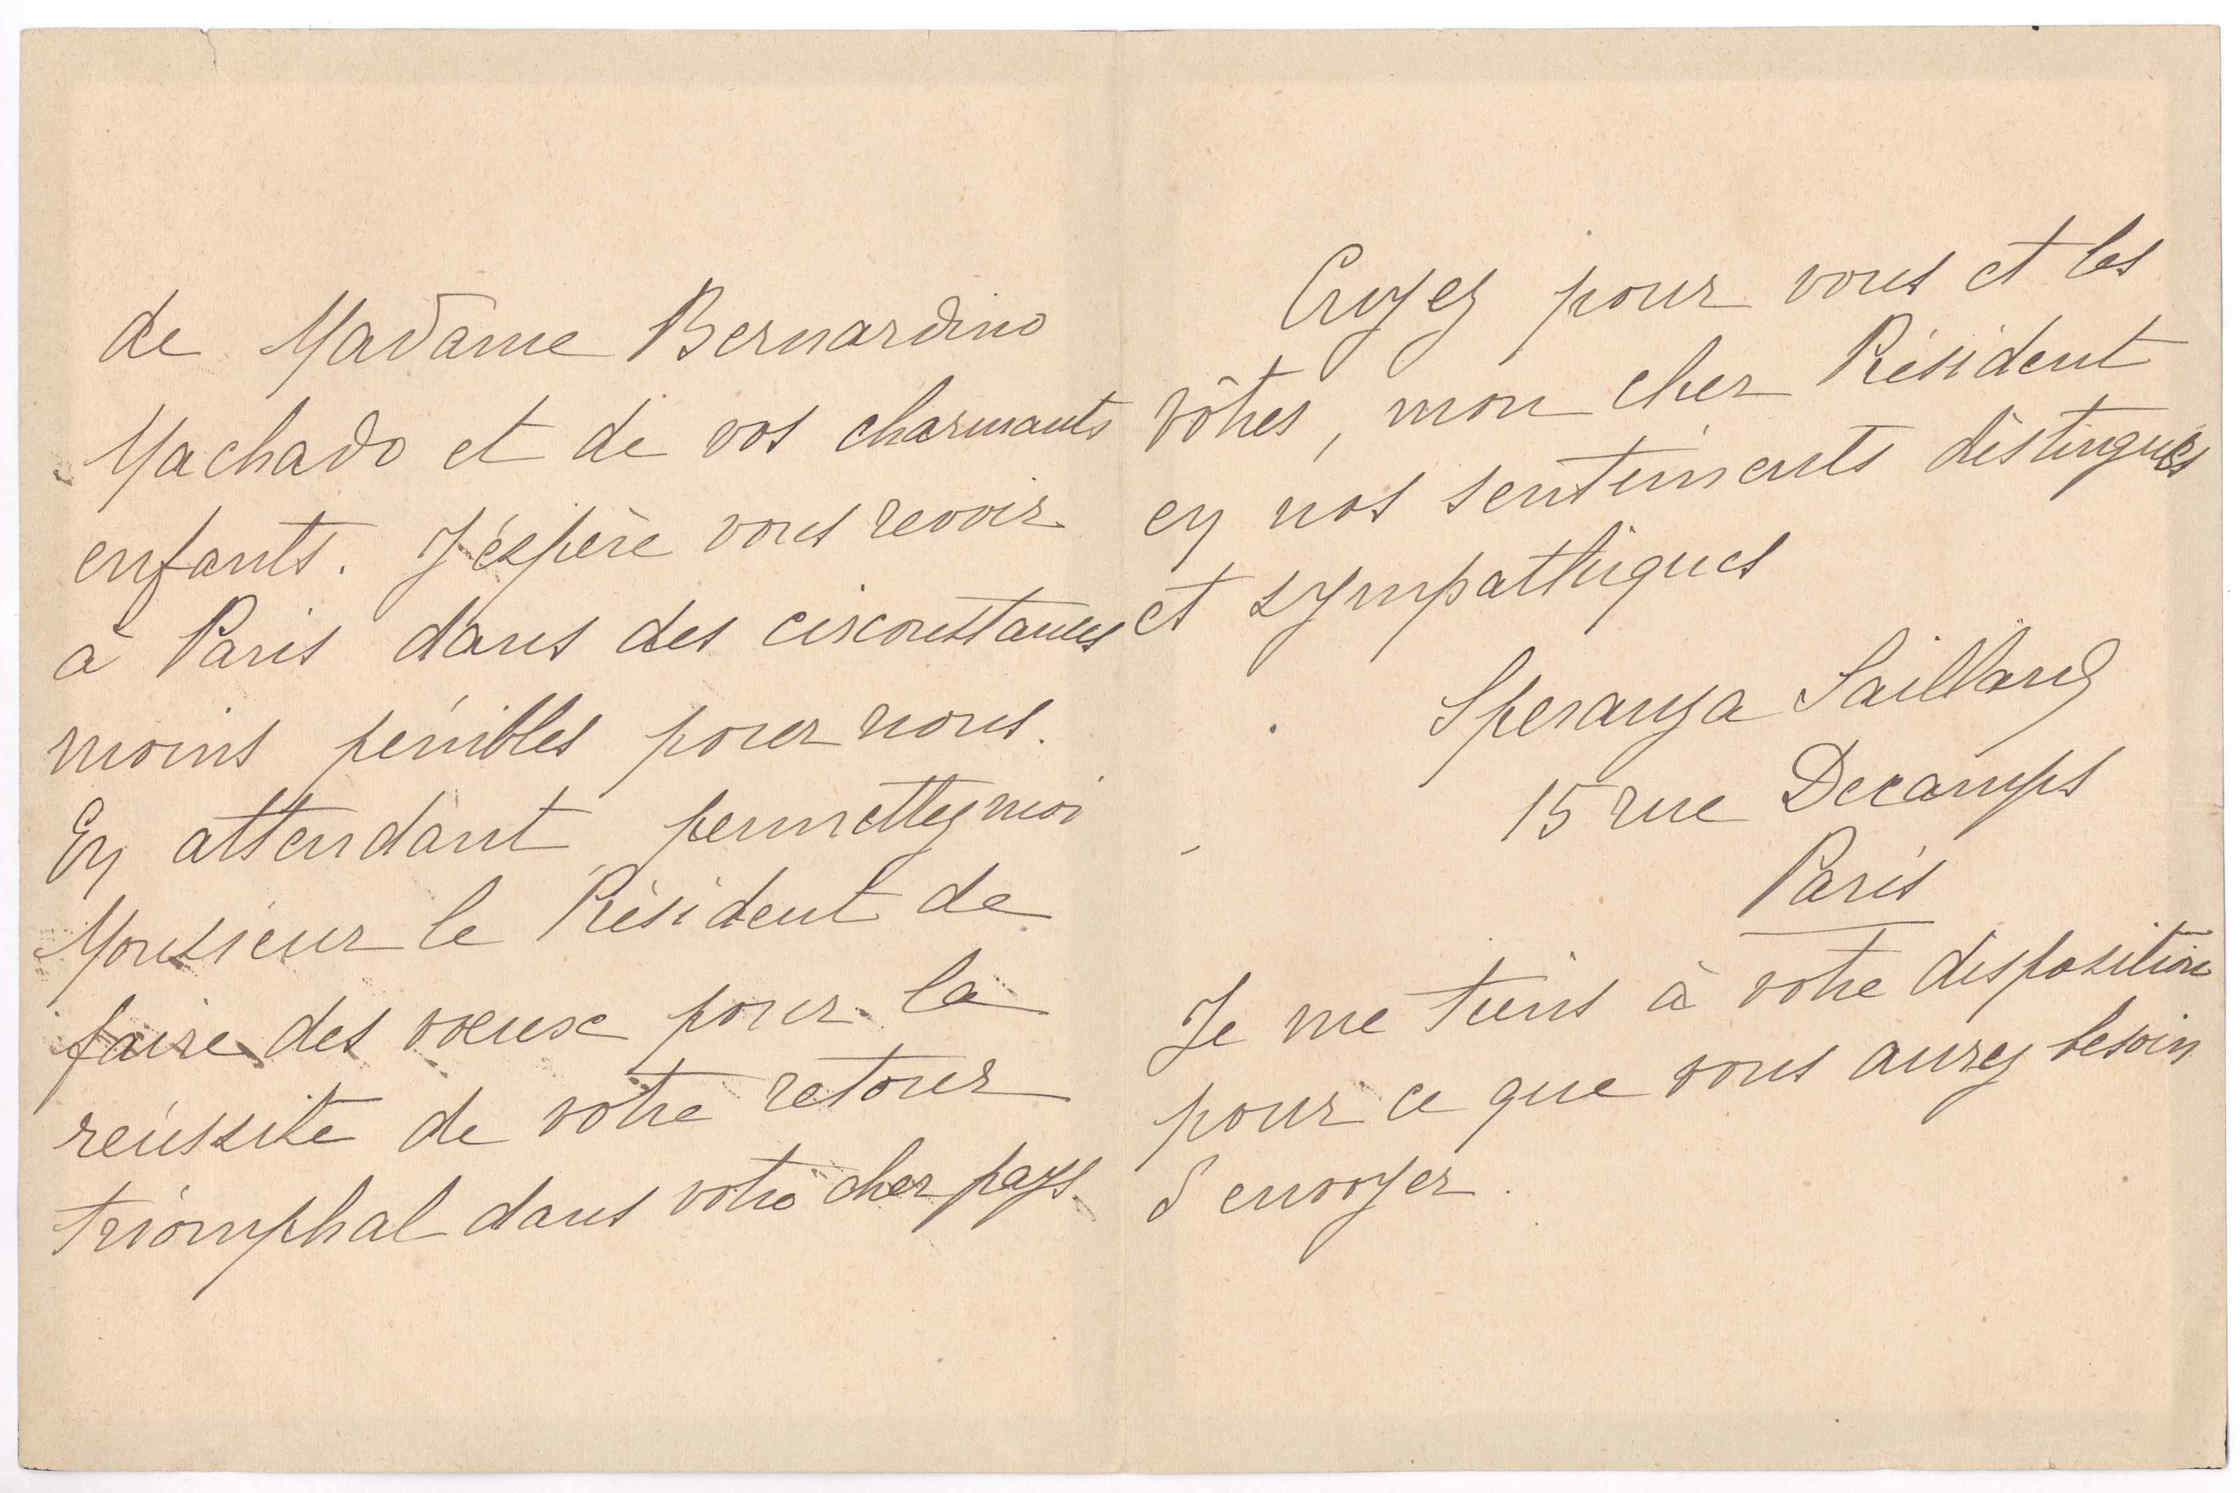 de Madame Bernardino
Machado et de vos charmants
enfants. J'éspère vous revoir
à Paris dans des circonstances
moins pénibles pour nous.
En attendant permettez moi
Monsieur le Président de
faire des vœux pour la
réussite de votre retour
triomphal dans votre cher pays
Croyez pour vous et les
vôtres, mon cher Président
en nos sentiments distingués
et sympathiques
Speranza Saillard
15 rue Decamps
Paris
Je me tiens à votre disposition
pour ce que vous aurez besoin
d'envoyer.